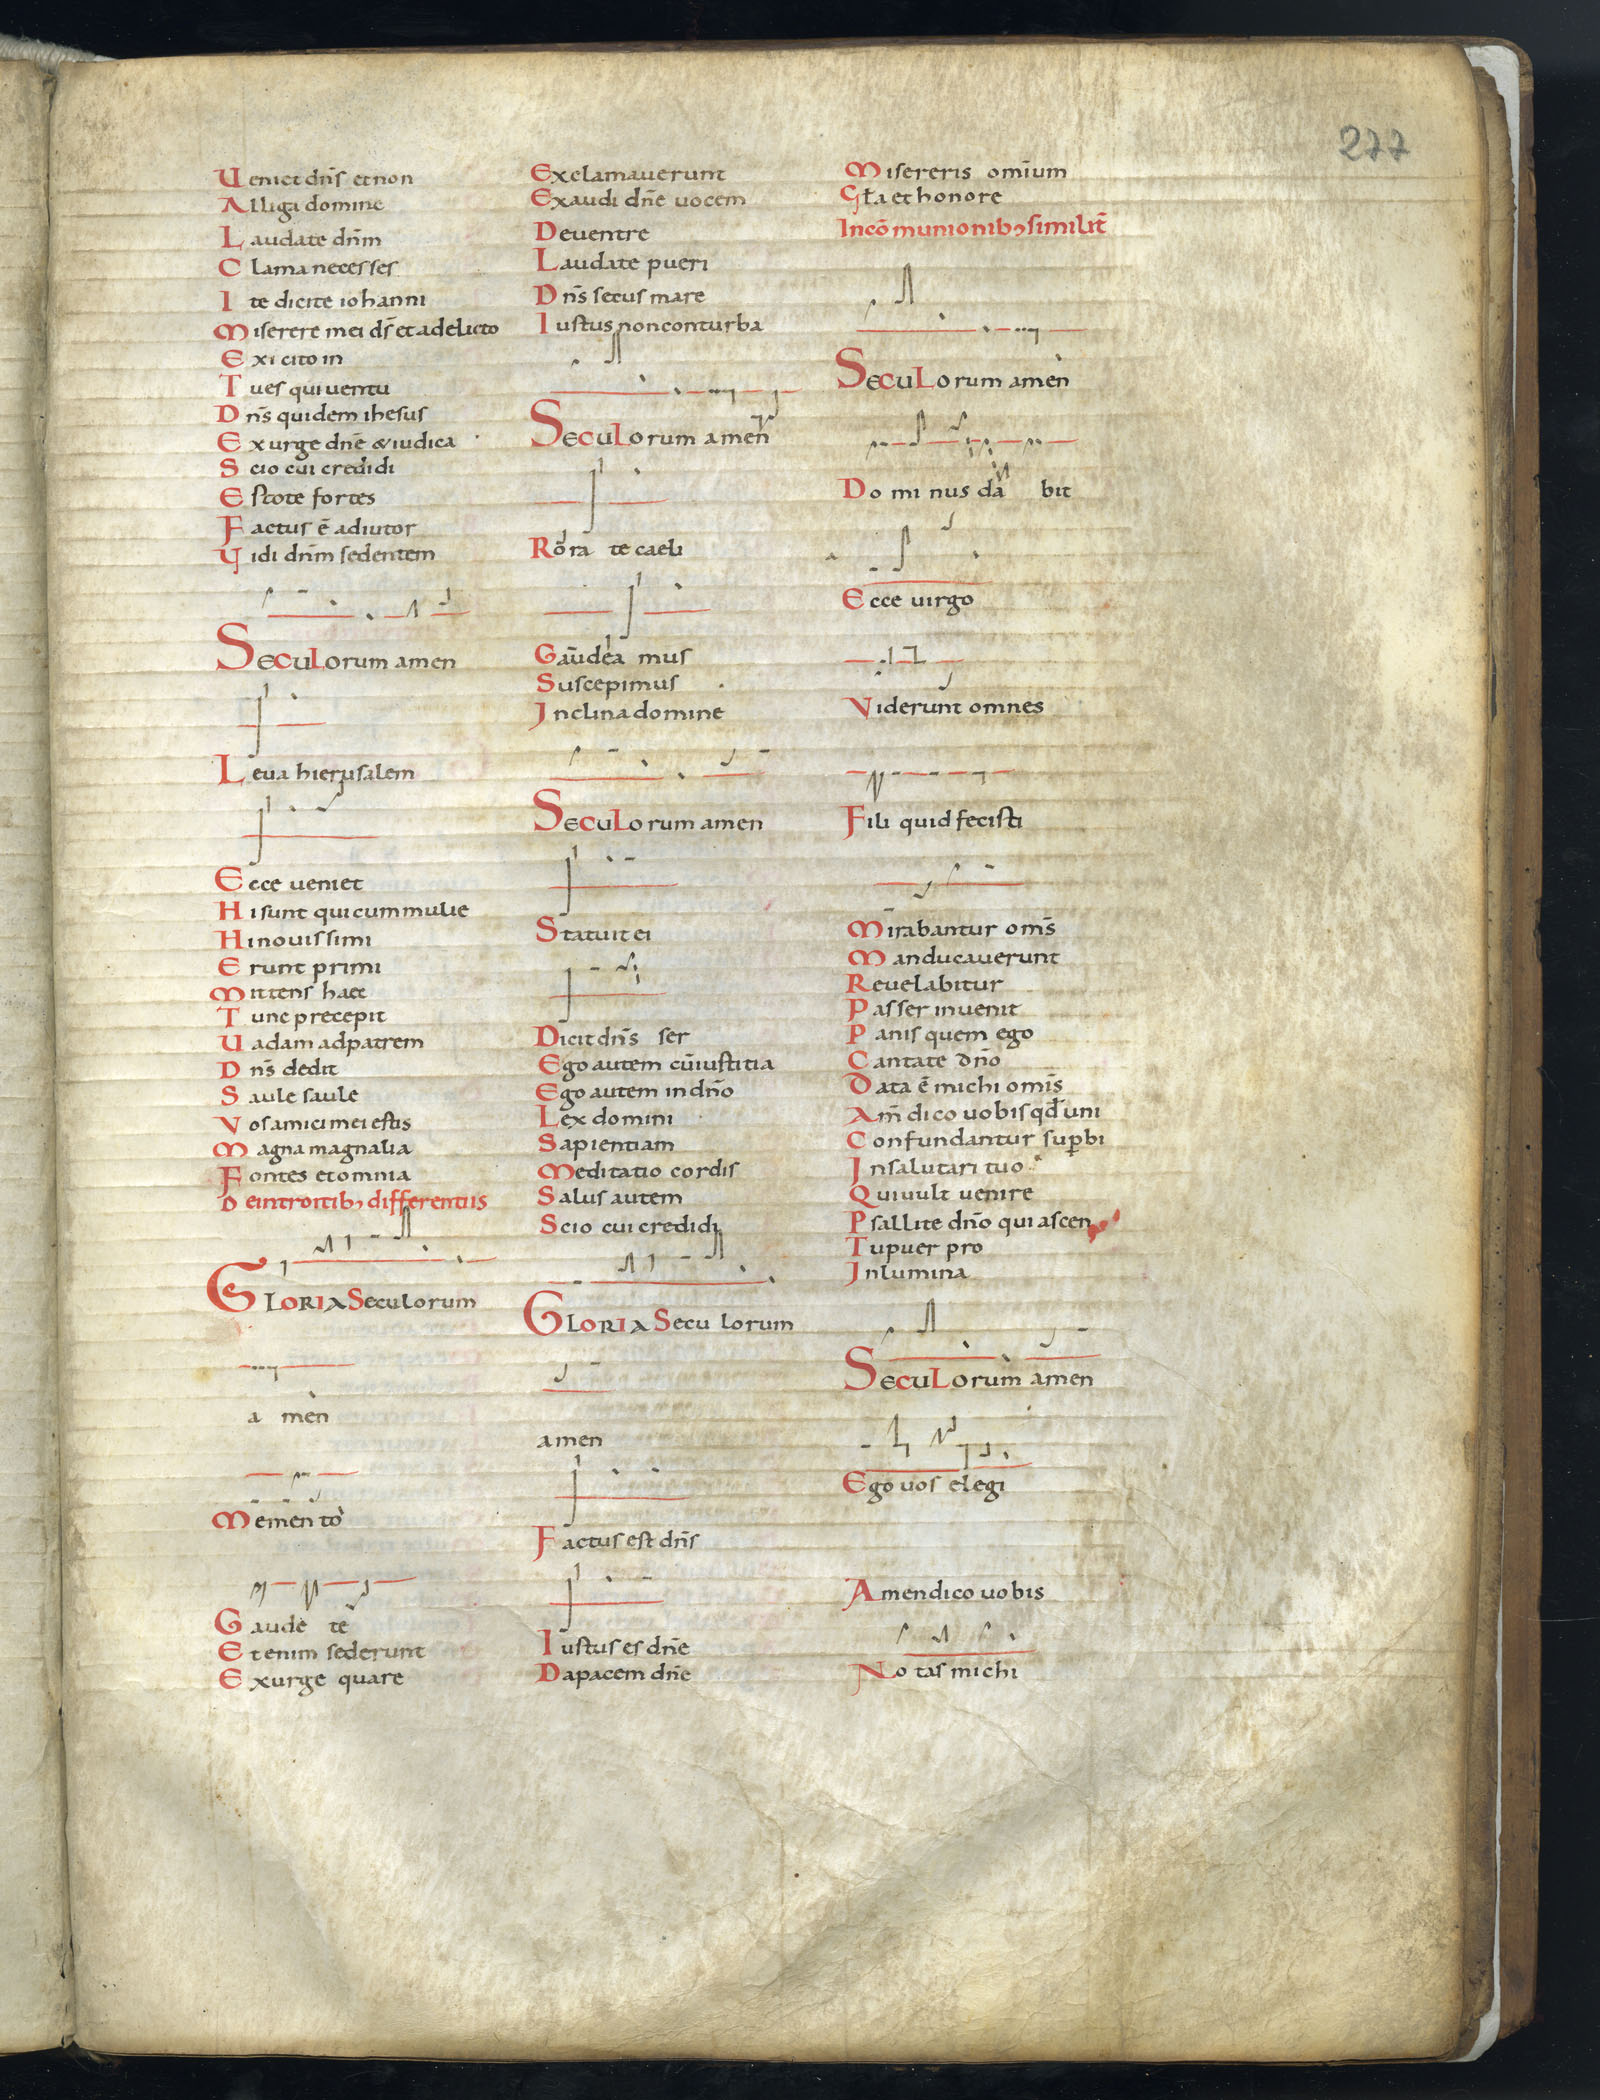 277
Ueniet dns̄ et non
Alliga domine
Laudate dn̄m
Clama ne cesses
Ite dicite iohanni
Miserere mei ds̄ et a delicto
Exi cito in
Tu es qui uentu
Dns̄ quidem ihesus
Exurge dn̄e & iudica
Scio cui credidi
Estote fortes
Factus ē adiutor
Vidi dn̄m sedentem
Seculorum amen
Leua hierusalem
Ecce ueniet
Hi sunt qui cum mulie
Hi nouissimi
Erunt primi
Mittens haec
Tunc precepit
Uadam ad patrem
Dns̄ dedit
Saule saule
Vos amici mei estis
Magna magnalia
Fontes et omnia
De introitib; differentiis
Gloria Seculorum
amen
Memento
Gaudete
Etenim sederunt
Exurge quare
Exclamauerunt
Exaudi dn̄e uocem
De uentre
Laudate pueri
Dns̄ secus mare
Iustus non conturba
Seculorum amen
Rorate caeli
Gaudeamus
Suscepimus
Inclina domine
Seculorum amen
Statuit ei
Dicit dns̄ ser
Ego autem cū iustitia
Ego autem in dn̄o
Lex domini
Sapientiam
Meditatio cordis
Salus autem
Scio cui credidi
Gloria Seculorum
amen
Factus est dns̄
Iustus es dn̄e
Da pacem dn̄e
Misereris omīum
Gl̄a et honore
In cōmunionib; similit̄
Seculorum amen
Dominus dabit
Ecce uirgo
Viderunt omnes
Fili quid fecisti
Mirabantur oms̄
Manducauerunt
Reuelabitur
Passer inuenit
Panis quem ego
Cantate dn̄o
Data ē michi omis̄
Am̄ dico uobis qd̄ uni
Confundantur sup̱bi
In salutari tuo
Qui uult uenire
Psallite dn̄o qui ascen
Tu puer pro
Inlumina
Seculorum amen
Ego uos elegi
Amen dico uobis
Notas michi